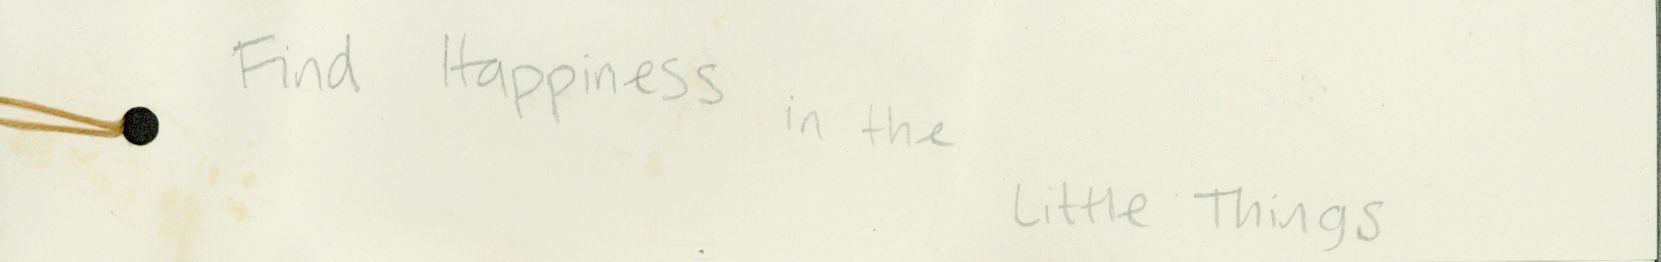 Find Happiness
in the
Little Things